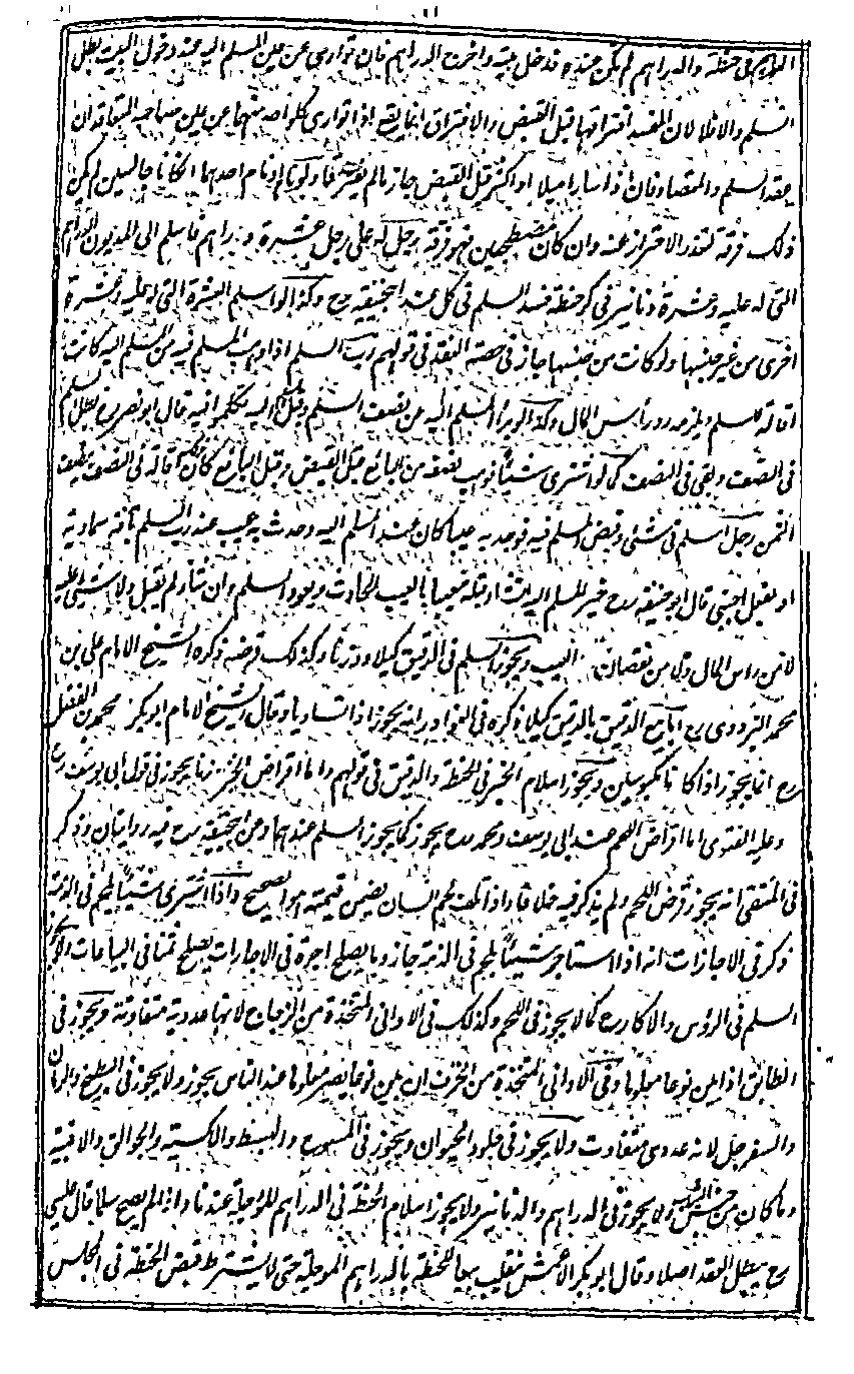 الدراهم في حنطة والدراهم لم يكن عنده فدخل بيته واخرج الدراهم فان توارى عن عين المسلم اليه عند دخول البيت بطل
السلم والا فلا لان المفسد افتراقهما قبل القبض والافتراق انما يقع اذا توارى كل واحد منهما عن عين صاحبه المتعاقدان
عقد السلم والمتصارفان اذا سارا ميلا او اكثر قبل القبض جاز ما لم يفترقا ولو ناما او نام احدهما ان كانا جالسين لم يكن
ذلك فرقة لتعذر الاحتراز عنه وان كان مضطجعين فهو فرقة رجل له على رجل عشرة دراهم فاسلم الى المديون الدراهم
التي له عليه وعشرة دنانير في كر حنطة فسد السلم في كل عند ابيحنيفة رح وكذا لو اسلم العشرة التي له عليه وعشرة
اخرى من غير جنسها ولو كانت من جنسها جاز في حصة النقد في قولهم رب السلم اذا وهب المسلم فيه من المسلم اليه كانت
اقالة للسلم ويلزمه رد رأس المال وكذا لو ابرأ المسلم اليه من نصف السلم وقبل المسلم اليه تكلموا فيه قال ابو نصر رح بطل السلم
في النصف وبقي في النصف كما لو اشترى شيئا فوهب نصفه من البائع قبل القبض وقبل البائع كان اقالة في النصف بنصف
الثمن رجل اسلم في شئ وقبض المسلم فيه فوجد به عيبا كان عند المسلم اليه وحدث به عيب عند رب السلم بآفة سماوية
او بفعل اجنبي قال ابو حنيفة رح خير المسلم اليه ان شاء قبله معيبا بالعيب الحادث ويعود السلم وان شاء لم يقبل ولا شئ عليه
لا من راس المال ولا من نقصان العيب ويجوز السلم في الدقيق كيلا ووزنا وكذلك قرضه ذكره الشيخ الامام علي بن
محمد البزدوي رح اما بيع الدقيق بالدقيق كيلا ذكره في النوادر انه يجوز اذا تساويا وقال الشيخ الامام ابو بكر محمد بن الفضل
رح انما يجوز اذا كانا مكبوسين ويجوز اسلام الخبز في الحنطة والدقيق في قولهم واما اقراض الخبز وزنا يجوز في قول ابي يوسف رح
وعليه الفتوى اما اقراض اللحم عند ابي يوسف ومحمد رح يجوز كما يجوز السلم عندهما وعن ابيحنيفة رح فيه روايتان وذكر
في المنتقى انه يجوز قرض اللحم ولم يذكر فيه خلافا واذا اتلف لحم انسان يضمن قيمته هو الصحيح واذا اشترى شيئا بلحم في الذمة
ذكر في الاجازات انه اذا استاجر شيئا بلحم في الذمة جاز وما يصلح اجرة في الاجارات يصلح ثمنا في البياعات ولا يجوز
السلم في الرؤس والاكارع كما لا يجوز في اللحم وكذلك في الاواني المتخذة من الزجاج لانها عددية متفاوتة ويجوز في
الطابق اذا بين نوعا معلوما وفي الاواني المتخذة من الخزف ان بين نوعا يصير معلوما عند الناس يجوز ولا يجوز في البطيخ والرمان
والسفرجل لانه عددي متفاوت ولا يجوز في جلود الحيوان ويجوز في المسوح والبسط والاكسية والجوالق والاقبية
وما كان من جنس الثياب ولا يجوز في الدراهم والدنانير ولا يجوز اسلام الحنطة في الدراهم المؤجلة عندنا واذا لم يصح سلما قال عيسى
رح يبطل العقد اصلا وقال ابو بكر الاعمش ينقلب بيعا للحنطة بالدراهم المؤجلة حتى لا يشترط قبض الحنطة في المجلس